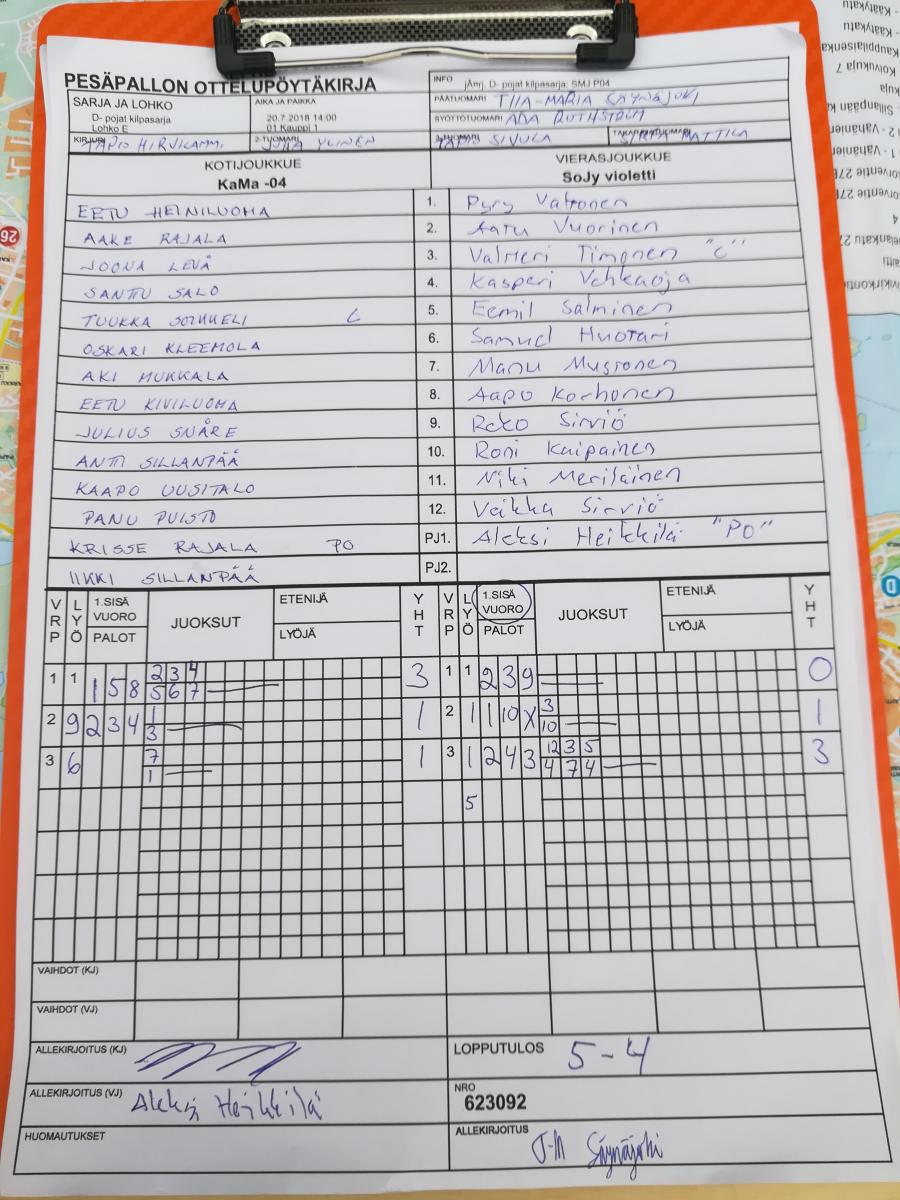 PESÄPALLON OTTELUPÖYTÄKIRJA
INFO jÄnrj. D- pojat kilpasarja: SMJ P04
SARJA JA LOHKO
D- pojat kilpasarja
Lohko E
AIKA JA PAIKKA
20.7.2018 14:00
01 Kauppi 1
PÄÄTUOMARI TIIA-MARIA SÄYNÄJOKI
SYÖTTÖTUOMARI ADA RUTHSTRÖM
KIRJURI TAPIO HIRVILAMMI
2-TUOMARI YLINEN
3-TUOMARI TAPIO SIVULA
TAKARAJATUOMARI SIRPA MATTILA
KOTIJOUKKUE
KaMa -04
VIERASJOUKKUE
SoJy violetti
EETU HEINILUOMA 1. Pyry Valtonen
AAKE RAJALA 2. Aatu Vuorinen
JOONA LEVÄ 3. Valtteri Timonen "C"
SANTTU SALO 4. Kasperi Vehkaoja
TUUKKA SOIKKELI C 5. Eemil Salminen
OSKARI KLEEMOLA 6. Samuel Huotari
AKI MUKKALA 7. Manu Mustonen
EETU KIVILUOMA 8. Aapo Korhonen
JULIUS SNÅRE 9. Reko Sirviö
ANTTI SILLANPÄÄ 10. Roni Kaipainen
KAAPO UUSITALO 11. Niki Meriläinen
PANU PUISTO 12. Veikka Sirviö
KRISSE RAJALA PO PJ1. Aleksi Heikkilä "PO"
IIKKI SILLANPÄÄ PJ2.
VRP LYÖ 1.SISÄ VUORO PALOT JUOKSUT ETENIJÄ LYÖJÄ YHT VRP LYÖ 1.SISÄ VUORO PALOT JUOKSUT ETENIJÄ LYÖJÄ YHT
1 1 1 5 8 2 3 4 3 1 1 2 3 9 0
5 6 7
2 9 2 3 4 1 1 2 1 1 10 X 3 1
3 10
3 6 7 1 3 1 2 4 3 12 3 5 3
1 4 7 4
5
VAIHDOT (KJ)
VAIHDOT (VJ)
ALLEKIRJOITUS (KJ)
LOPPUTULOS 5-4
ALLEKIRJOITUS (VJ) Aleksi Heikkilä
NRO
623092
HUOMAUTUKSET
ALLEKIRJOITUS T-M Säynäjoki
26